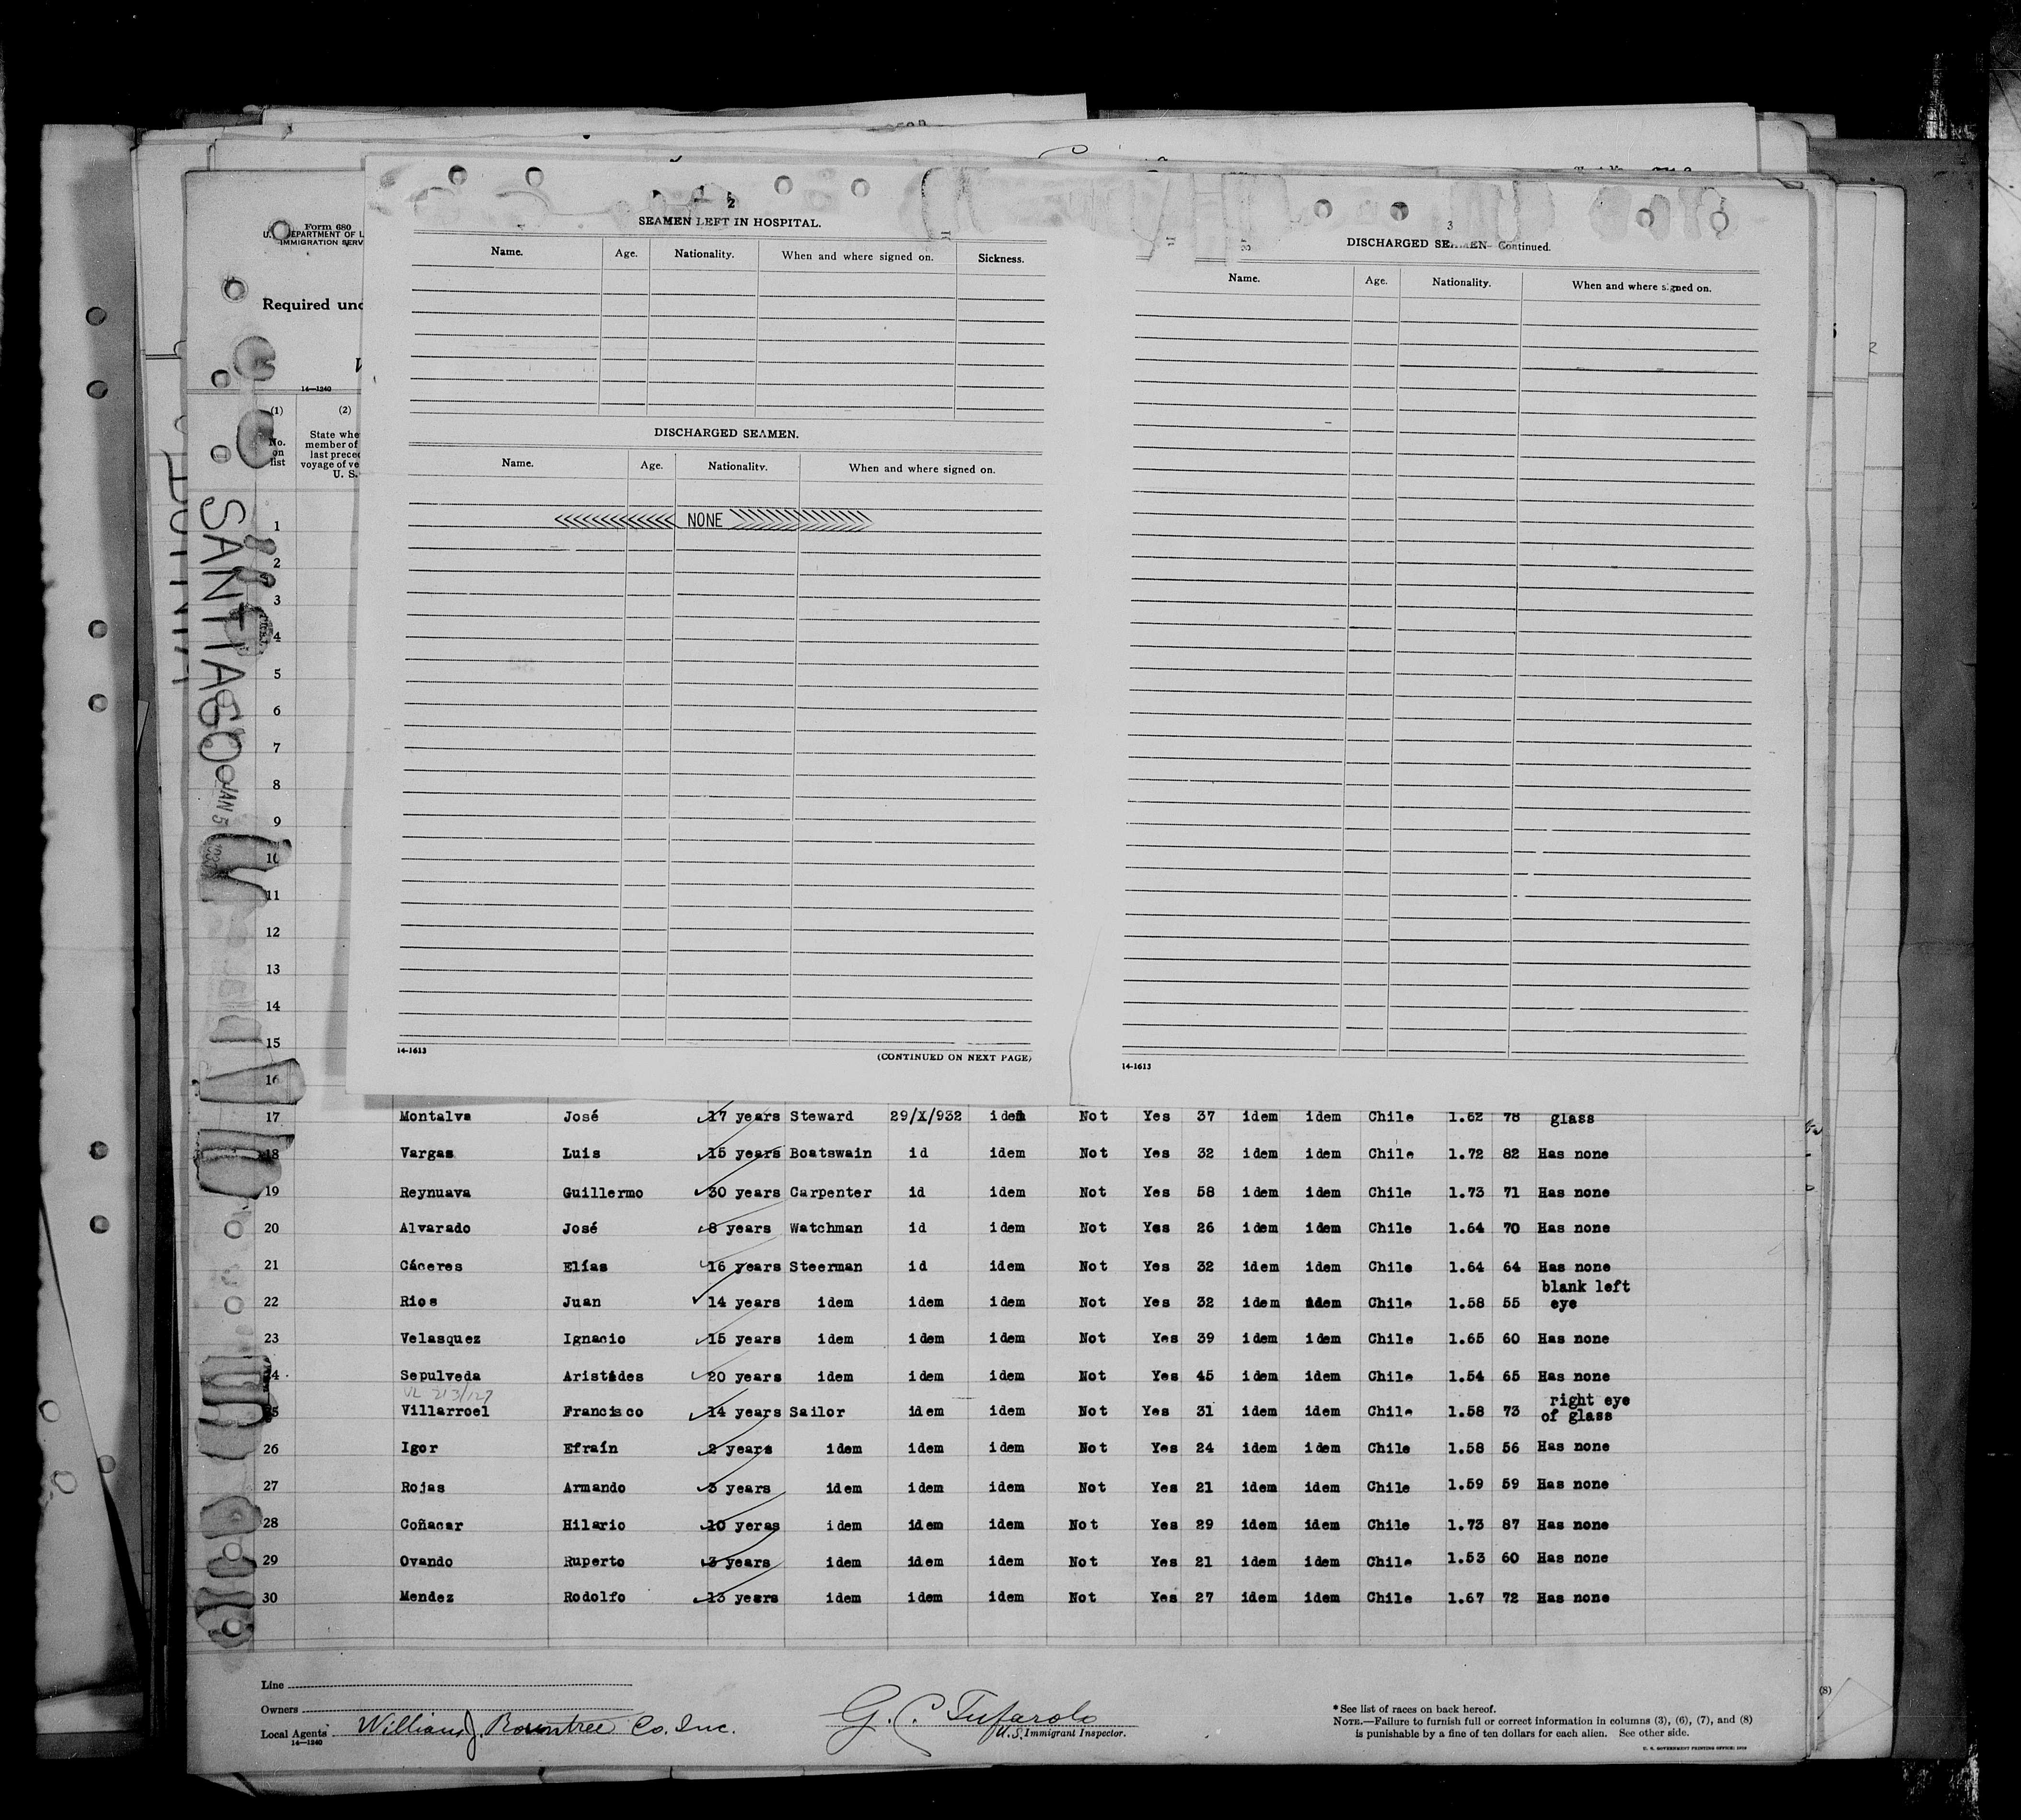 Form 680
U. S. DEPARTMENT OF L
IMMIGRATION SERV
Required und
14—1240
(1)
No.
on
list
(2)
State whe
member of
last preced
voyage of ve
U. S.
SANTIAGO
JAN 5
2
SEAMEN LEFT IN HOSPITAL.
Name. Age. Nationality. When and where signed on. Sickness.
DISCHARGED SEAMEN.
Name. Age. Nationality. When and where signed on.
NONE
14-1613
(CONTINUED ON NEXT PAGE)
3
DISCHARGED SEAMEN—Continued.
Name. Age. Nationality. When and where signed on.
14-1613
1
2
3
4
5
6
7
8
9
10
11
12
13
14
15
16
17 Montalva José 17 years Steward 29/X/932 idem Not Yes 37 idem idem Chile 1.62 78 glass
18 Vargas Luis 15 years Boatswain id idem Not Yes 32 idem idem Chile 1.72 82 Has none
19 Reynuava Guillermo 30 years Carpenter id idem Not Yes 58 idem idem Chile 1.73 71 Has none
20 Alvarado José 8 years Watchman id idem Not Yes 26 idem idem Chile 1.64 70 Has none
21 Cáceres Elías 16 years Steerman id idem Not Yes 32 idem idem Chile 1.64 64 Has none
22 Rios Juan 14 years idem idem idem Not Yes 32 idem idem Chile 1.58 55 blank left eye
23 Velasquez Ignacio 15 years idem idem idem Not Yes 39 idem idem Chile 1.65 60 Has none
24 Sepulveda Aristides 20 years idem idem idem Not Yes 45 idem idem Chile 1.54 65 Has none
VL 213/127
25 Villarroel Francisco 14 years Sailor idem idem Not Yes 31 idem idem Chile 1.58 73 right eye of glass
26 Igor Efraín 2 years idem idem idem Not Yes 24 idem idem Chile 1.58 56 Has none
27 Rojas Armando 3 years idem idem idem Not Yes 21 idem idem Chile 1.59 59 Has none
28 Coñacar Hilario 10 yeras idem idem idem Not Yes 29 idem idem Chile 1.73 87 Has none
29 Ovando Ruperto 3 years idem idem idem Not Yes 21 idem idem Chile 1.53 60 Has none
30 Mendez Rodolfo 13 years idem idem idem Not Yes 27 idem idem Chile 1.67 72 Has none
Line
Owners
Local Agents William J. Rountree Co. Inc.
14—1240
G. C. Tufarolo
U.S. Immigrant Inspector.
* See list of races on back hereof.
NOTE.—Failure to furnish full or correct information in columns (3), (6), (7), and (8)
is punishable by a fine of ten dollars for each alien. See other side.
U. S. GOVERNMENT PRINTING OFFICE: 1929
(8)